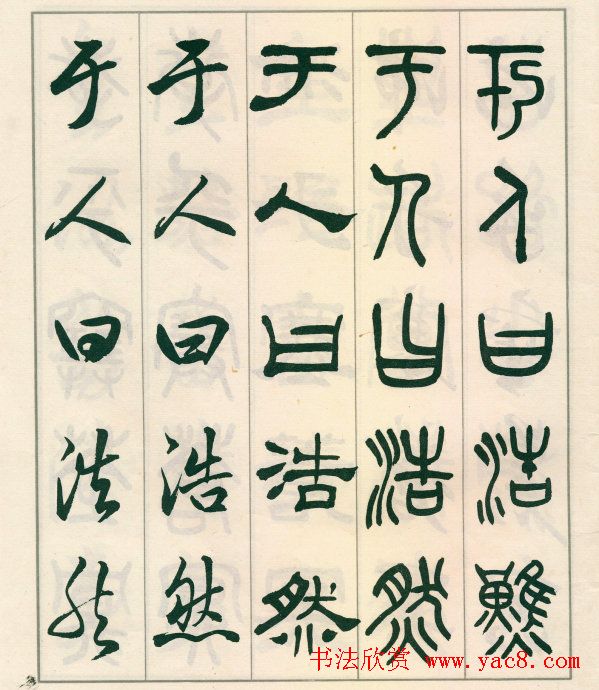 于人曰浩然
于人曰浩然
于人曰浩然
于人曰浩然
于人曰浩然
书法欣赏 www.yac8.com